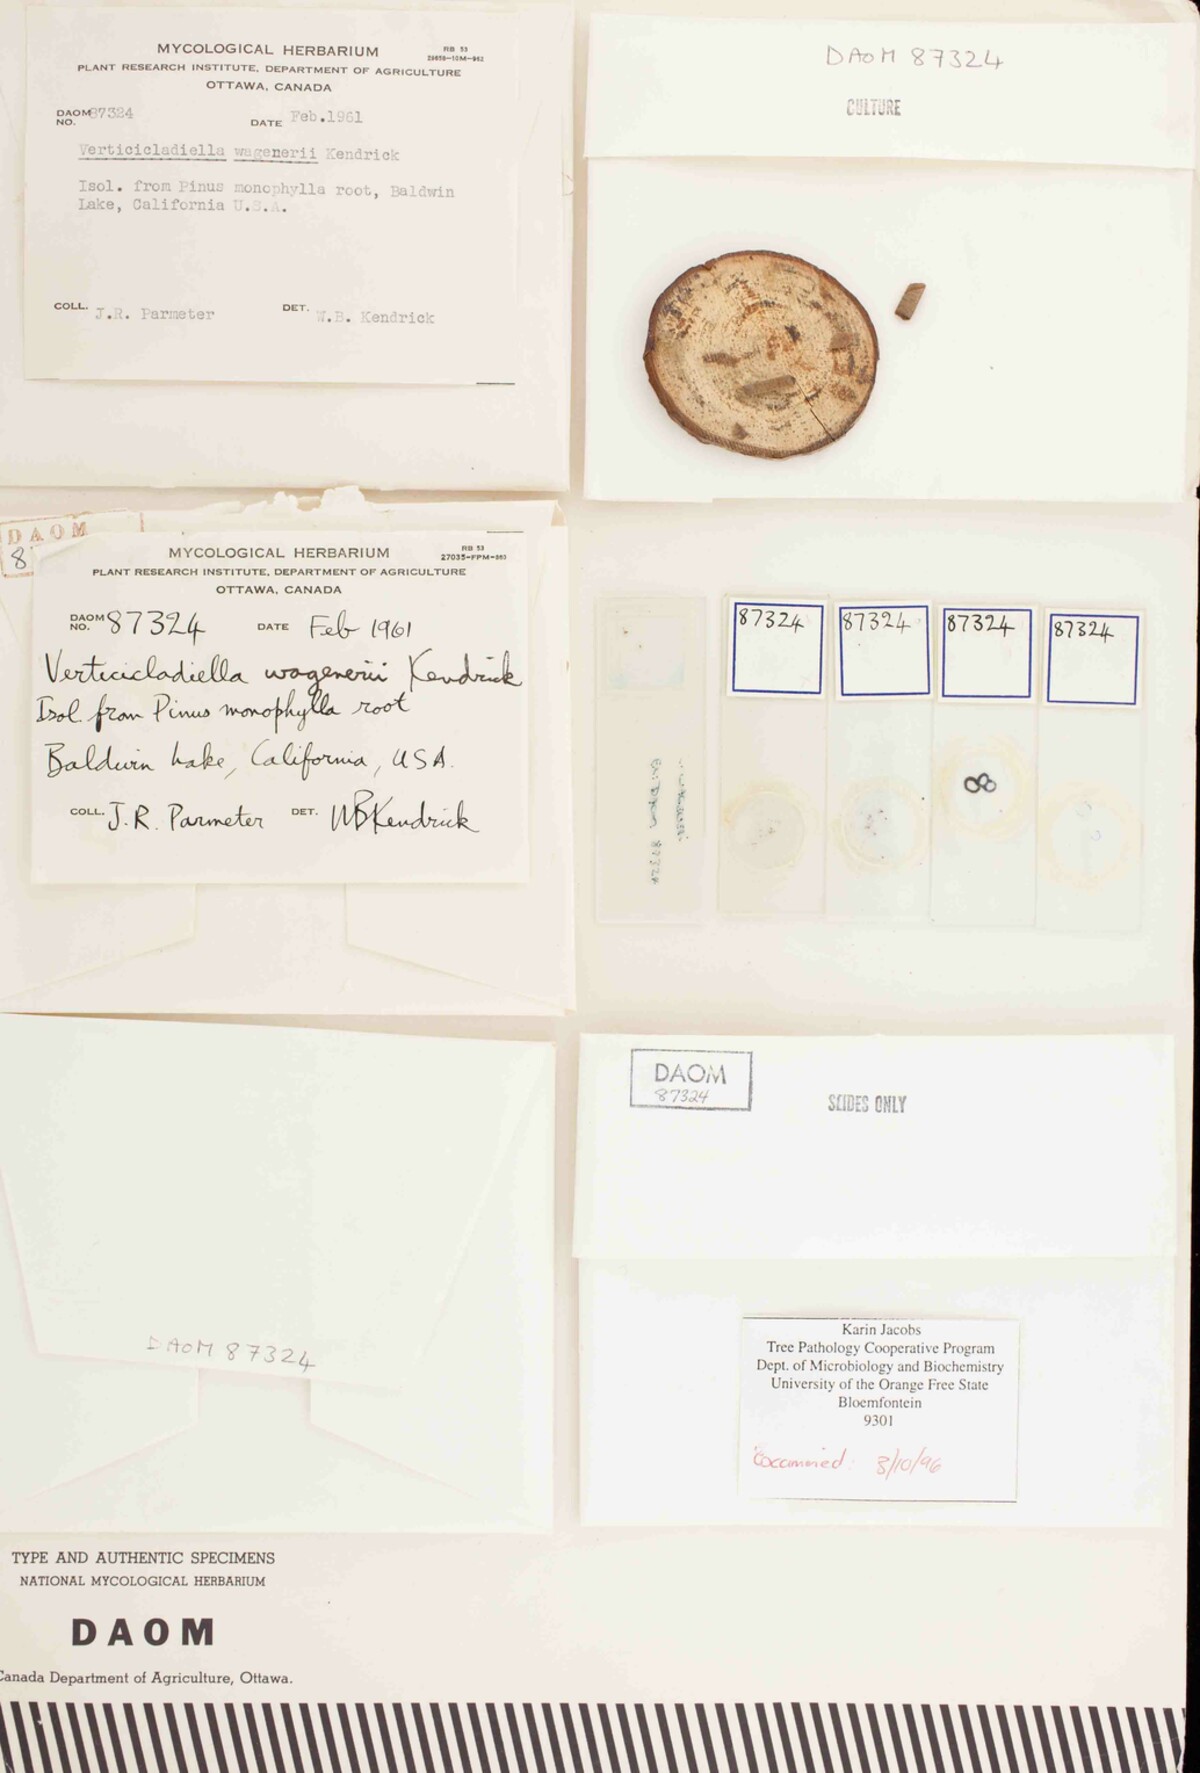 MYCOLOGICAL HERBARIUM
RB 53
PLANT RESEARCH INSTITUTE, DEPARTMENT OF AGRICULTURE
OTTAWA, CANADA
DAOM NO. 87324 DATE Feb.1961
Verticicladiella wagenerii Kendrick
Isol. from Pinus monophylla root, Baldwin
Lake, California U.S.A.
COLL. J.R. Parmeter DET. W.B. Kendrick
DAOM 87324
CULTURE
DAOM
8
MYCOLOGICAL HERBARIUM
RB 53
PLANT RESEARCH INSTITUTE, DEPARTMENT OF AGRICULTURE
OTTAWA, CANADA
DAOM NO. 87324 DATE Feb 1961
Verticicladiella wagenerii Kendrick
Isol. from Pinus monophylla root
Baldwin Lake, California, USA.
COLL. J.R. Parmeter DET. WBKendrick
87324
87324
87324
87324
87324
8
DAOM 87324
DAOM
87324
SLIDES ONLY
Karin Jacobs
Tree Pathology Cooperative Program
Dept. of Microbiology and Biochemistry
University of the Orange Free State
Bloemfontein
9301
Examined: 3/10/96
TYPE AND AUTHENTIC SPECIMENS
NATIONAL MYCOLOGICAL HERBARIUM
DAOM
Canada Department of Agriculture, Ottawa.